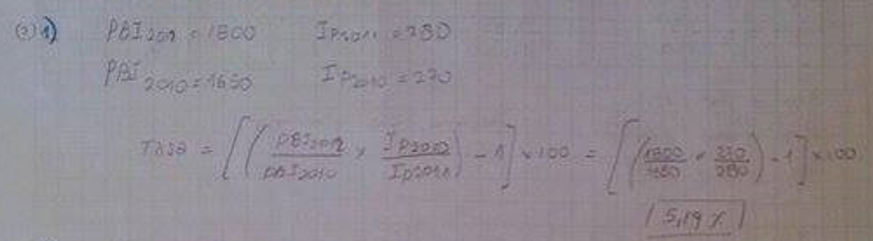 (2) 1) PBI 2011 = 1800 Ip2011 = 280
PBI 2010 = 1650 Ip2010 = 270
Tasa = [((PBI2011/PBI2010) × (Ip2010/Ip2011)) - 1] × 100 = [((1800/1650) × (270/280)) - 1] × 100
5,19 %